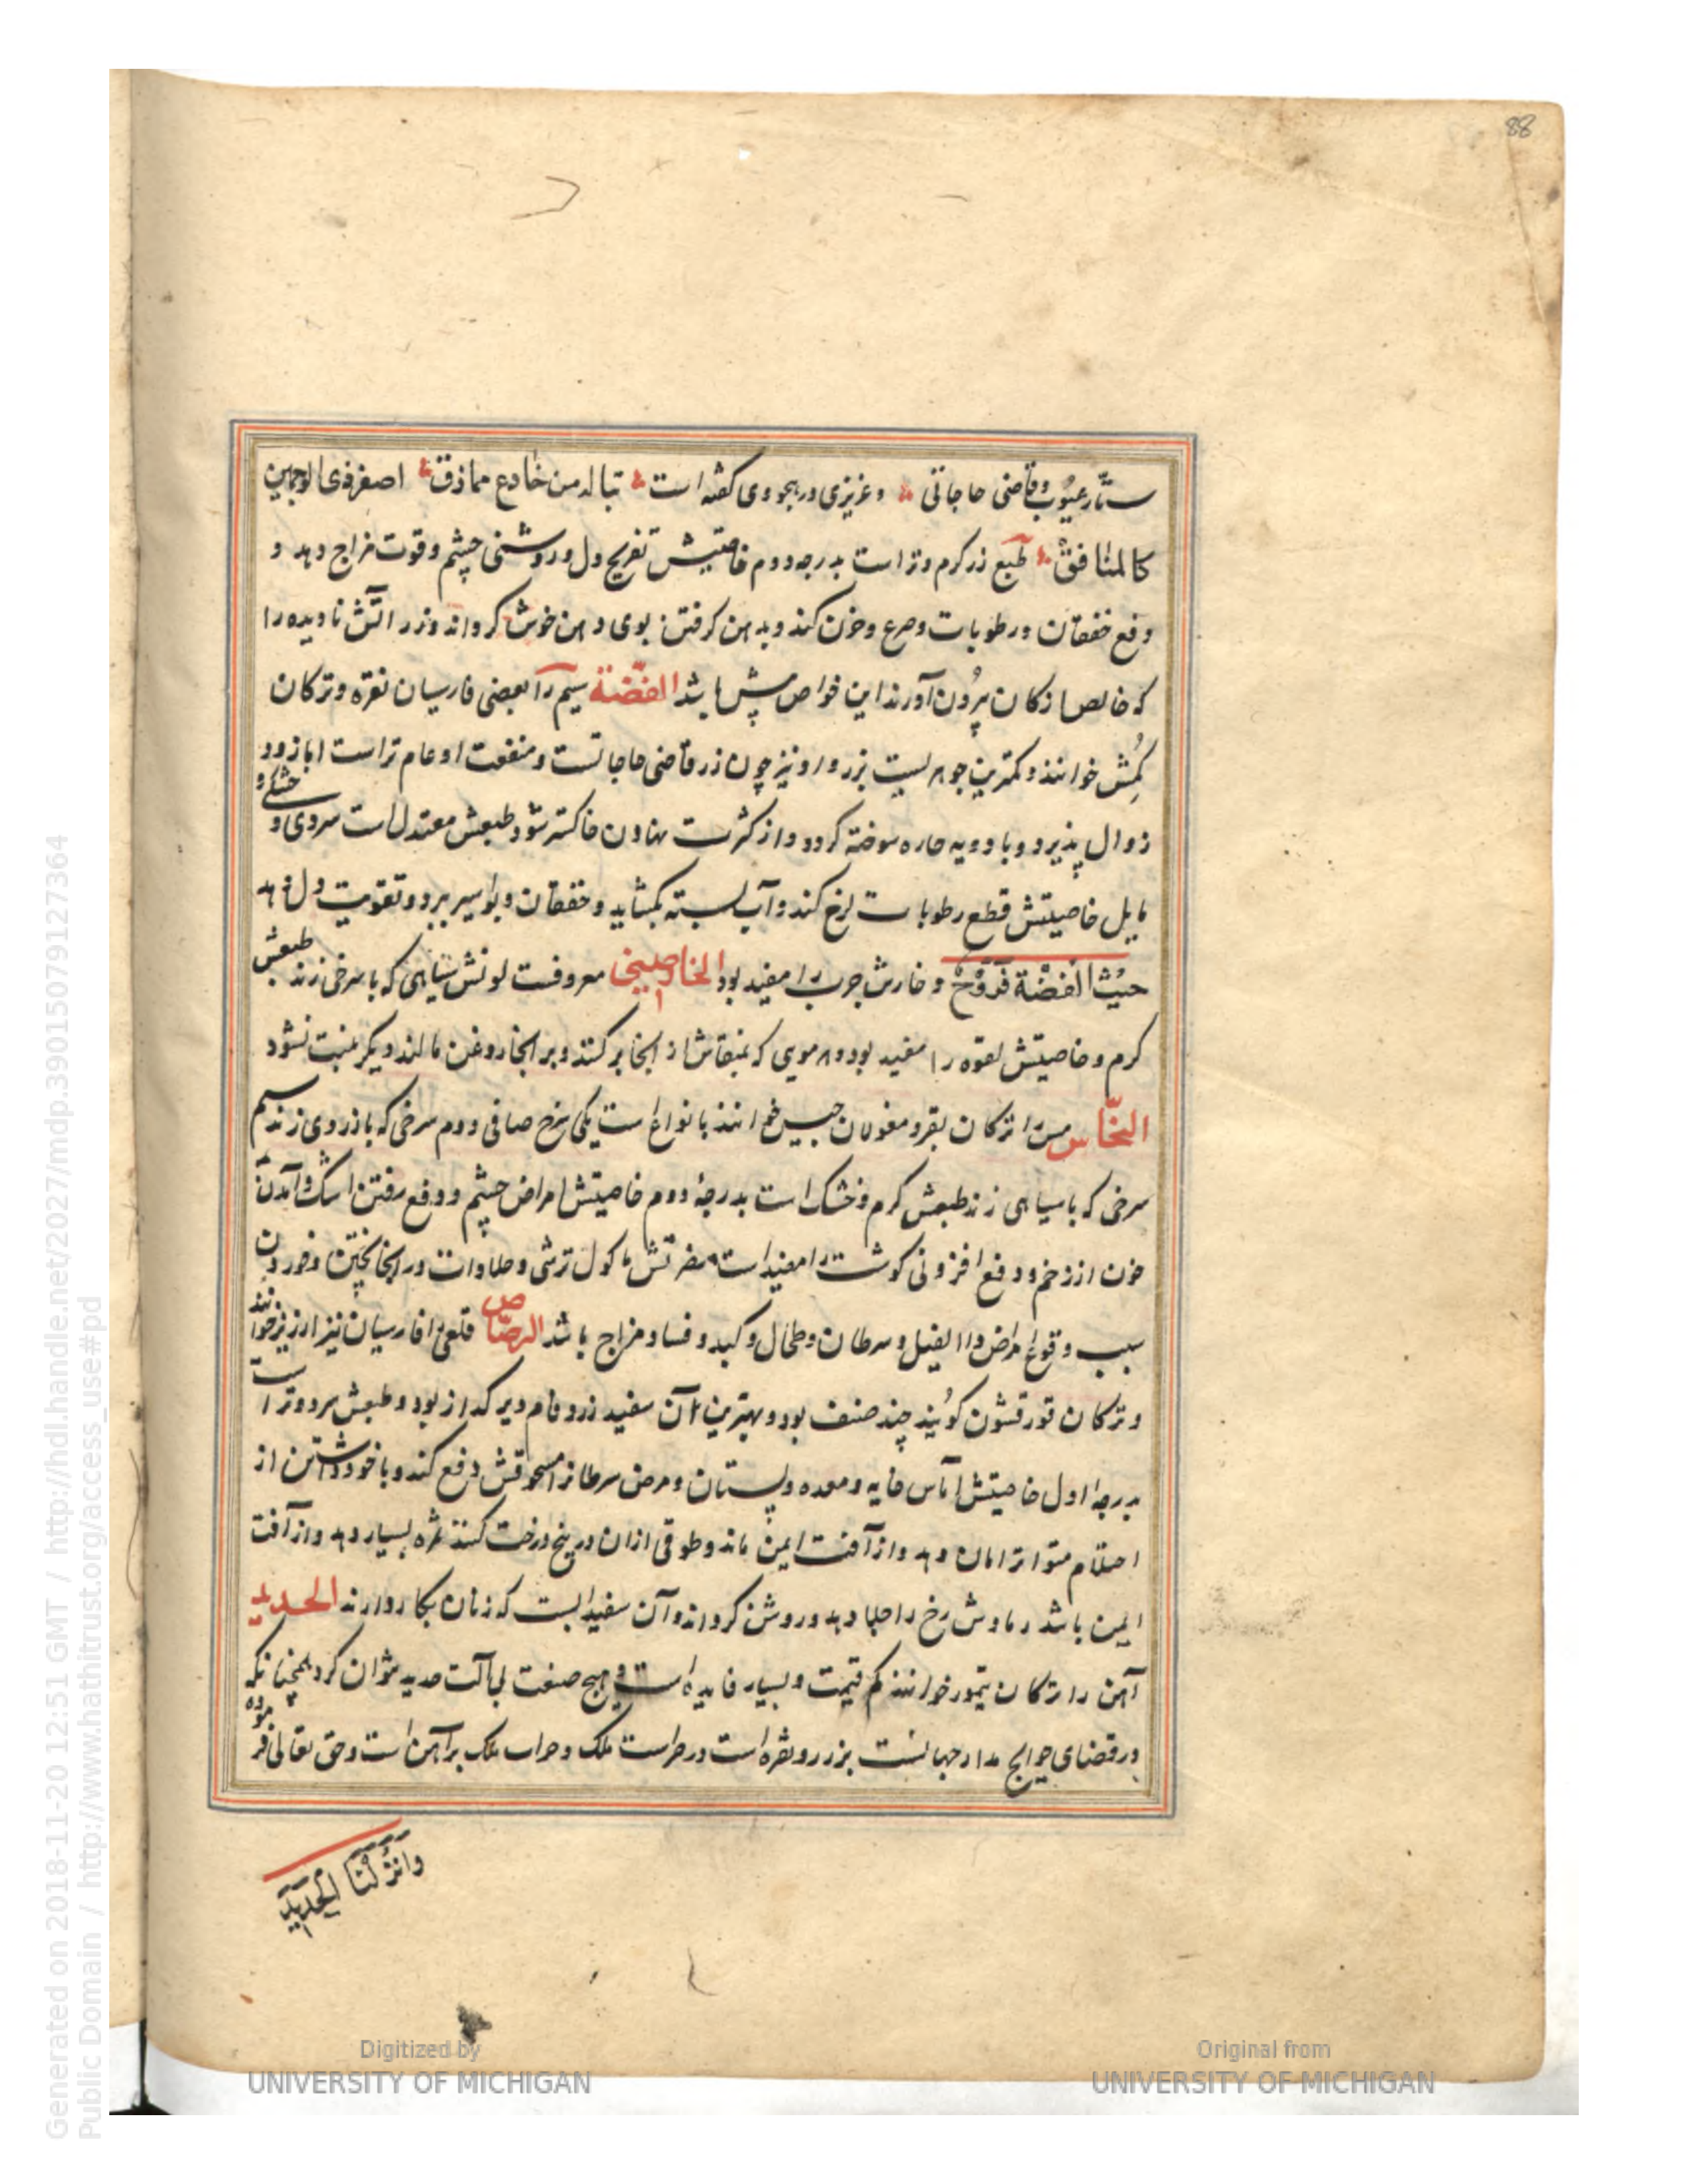 88
ستّار عیوب و قاضی حاجاتی و عزیزی در هجو وی گفته است تبا له من خادع مماذق اصفر ذی الوجهین
کالمنافق طبع زر گرم و تر است بدرجه دوم خاصیتش تفریح دل و روشنی چشم و قوت مزاج دهد و
دفع خفقان و رطوبات و صرع و حزن کند و بدهن گرفتن بوی دهن خوش گرداند و زر آتش نادیده را
که خالص از کان برون آورند این خواص بیش باشد الفضّة سیم را بعضی فارسیان نقره و ترکان
کُمش خوانند و کمترین جوهریست بزر و او نیز چون زر قاضی حاجاتست و منفعت او عام تر است اما زود
زوال پذیرد و با ادویه حاره سوخته گردد و از کثرت نهادن خاکستر شود طبعش معتدل است سردی و خشکی و
مایل خاصیتش قطع رطوبات لزج کند و آب بسته بگشاید و خفقان و بواسیر ببرد و تقویت دل دهد
خبث الفضة قروح و خارش جرب را مفید بود الخارصینی معروفست لونش سیاهی که با سرخی زند طبعش
گرم و خاصیتش لقوه را مفید بود و هر مویی که بمنقاش از آنجا بر کنند و بر آنجا روغن مالند دیگر منبت نشود
النحّاس مس را ترکان بقر و مغولان جیس خوانند بانواع است یکی سرخ صافی دوم سرخی که با زردی زند سیم
سرخی که با سیاهی زند طبعش گرم و خشک است بدرجهٔ دوم خاصیتش امراض چشم و دفع رفتن اشک و آمدن
خون از زخم و دفع افزونی گوشت را مفید است مضرتش ماکول ترشی و حلاوات در آنجا پختن و خوردن
سبب وقوع امراض داء الفیل و سرطان و طحال و کبد و فساد مزاج باشد الرصّاص قلعی را فارسیان نیز ارزیز خوانند
و ترکان قورقشون گویند چند صنف بود و بهترین آن سفید زردفام دیر گداز بود و طبعش سرد و تر است
بدرجهٔ اول خاصیتش آماس خایه و معده و پستان و مرض سرطان را مسحوقش دفع کند و با خود داشتن از
احتلام متواتر امان دهد و از آفت ایمن ماند و طوقی از آن در بیخ درخت کنند ثمره بسیار دهد و از آفت
ایمن باشد رمادش رخ را جلا دهد و روشن گرداند و آن سفیدابست که زنان بکار دارند الحدید
آهن را ترکان تیمور خوانند کم قیمت و بسیار فایده است و هیچ صنعت بی آلت حدید نتوان کرد همچنانکه
در قضای حوایج مدار جهانست بزر و نقره است در حراست ملک و خراب ملک بر آهن است و حق تعالی فرموده
وانزلنا الحدید
Generated on 2018-11-20 12:51 GMT / http://hdl.handle.net/2027/mdp.39015079127364
Public Domain / http://www.hathitrust.org/access_use#pd
Digitized by
UNIVERSITY OF MICHIGAN
Original from
UNIVERSITY OF MICHIGAN